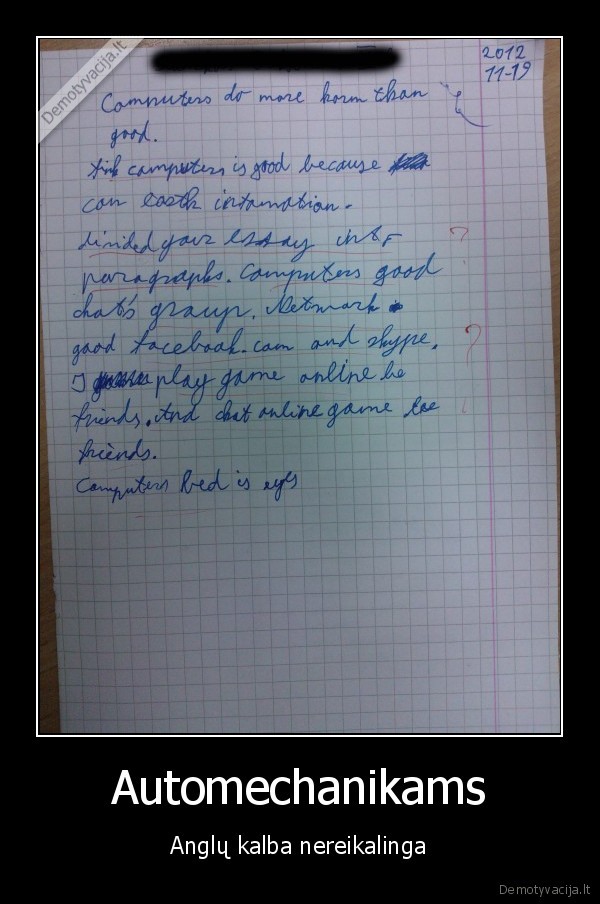 Demotyvacija.lt
2012
11-19
Computers do more horm than
good.
computers is good because
can eastk intomation.
divided your essay
paragraphs. Computers good
chat's group. Network
good facebook.com and skype.
I play game online be
friends. And chat online game
friends.
Computers bed is eyes
Automechanikams
Anglų kalba nereikalinga
Demotyvacija.lt